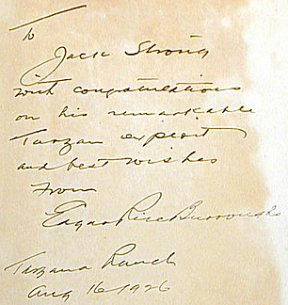 To
Jack Strong
with congratulations
on his remarkable
Tarzan exploit
and best wishes
From
Edgar Rice Burroughs
Tarzana Ranch
Aug 16 1926